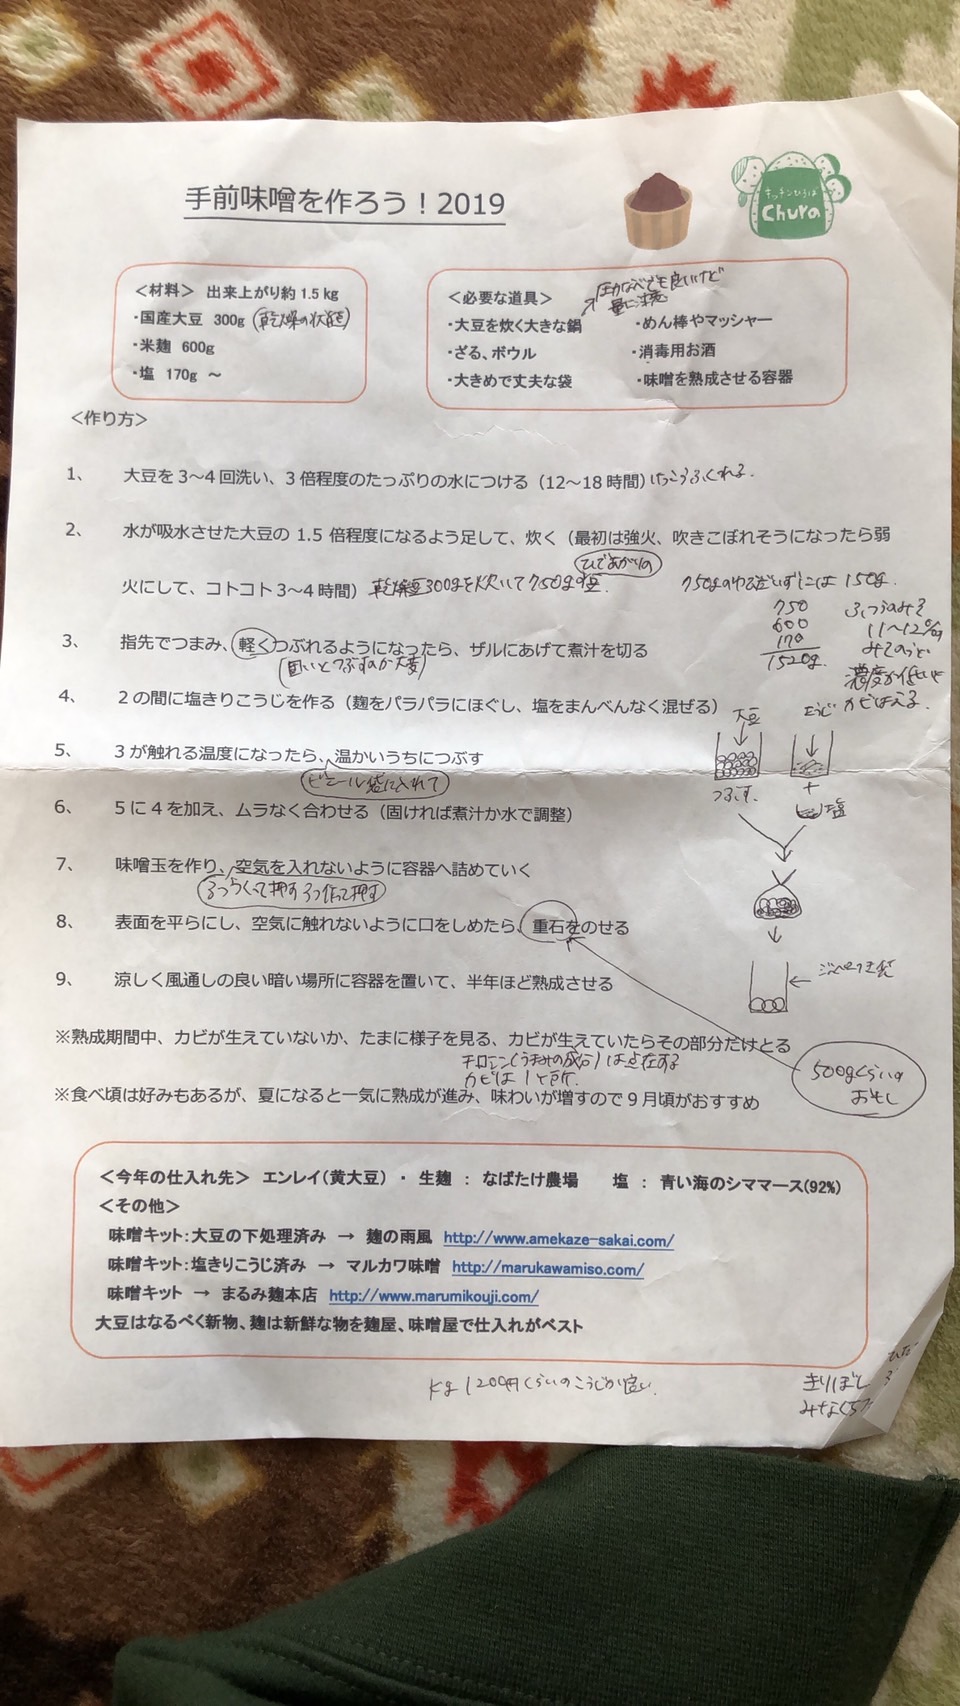 手前味噌を作ろう！2019
キッチンひろば
Chura
＜材料＞ 出来上がり約1.5kg
・国産大豆 300g (乾燥の状態)
・米麹 600g
・塩 170g ～
＜必要な道具＞
圧力なべでも良いけど
量に注意
・大豆を炊く大きな鍋
・めん棒やマッシャー
・ざる、ボウル
・消毒用お酒
・大きめで丈夫な袋
・味噌を熟成させる容器
＜作り方＞
1、 大豆を3～4回洗い、3倍程度のたっぷりの水につける（12～18時間）けっこうふくれる.
2、 水が吸水させた大豆の 1.5 倍程度になるよう足して、炊く（最初は強火、吹きこぼれそうになったら弱
火にして、コトコト3～4時間）乾燥豆300gを炊いて750gの豆
750
600
170
1520g.
ふつうのみそ
11～12%
濃度が低いと
カビはえる.
3、 指先でつまみ、軽くつぶれるようになったら、ザルにあげて煮汁を切る
(固いとつぶすのが大変)
4、 2の間に塩きりこうじを作る（麹をパラパラにほぐし、塩をまんべんなく混ぜる）
大豆
こうじ
5、 3が触れる温度になったら、温かいうちにつぶす
ビニール袋に入れて
つぶす.
+
塩
6、 5に4を加え、ムラなく合わせる（固ければ煮汁か水で調整）
7、 味噌玉を作り、空気を入れないように容器へ詰めていく
8、 表面を平らにし、空気に触れないように口をしめたら、重石をのせる
9、 涼しく風通しの良い暗い場所に容器を置いて、半年ほど熟成させる
※熟成期間中、カビが生えていないか、たまに様子を見る、カビが生えていたらその部分だけとる
チロシン(うまみの成分)は点在する
カビは1ヶ所.
500gくらいの
おもし
※食べ頃は好みもあるが、夏になると一気に熟成が進み、味わいが増すので9月頃がおすすめ
＜今年の仕入れ先＞ エンレイ（黄大豆） ・ 生麹 ： なばたけ農場 塩 ： 青い海のシママース(92%)
＜その他＞
味噌キット：大豆の下処理済み → 麹の雨風 http://www.amekaze-sakai.com/
味噌キット：塩きりこうじ済み → マルカワ味噌 http://marukawamiso.com/
味噌キット → まるみ麹本店 http://www.marumikouji.com/
大豆はなるべく新物、麹は新鮮な物を麹屋、味噌屋で仕入れがベスト
kg 1200円くらいのこうじが良い.
きりぼし